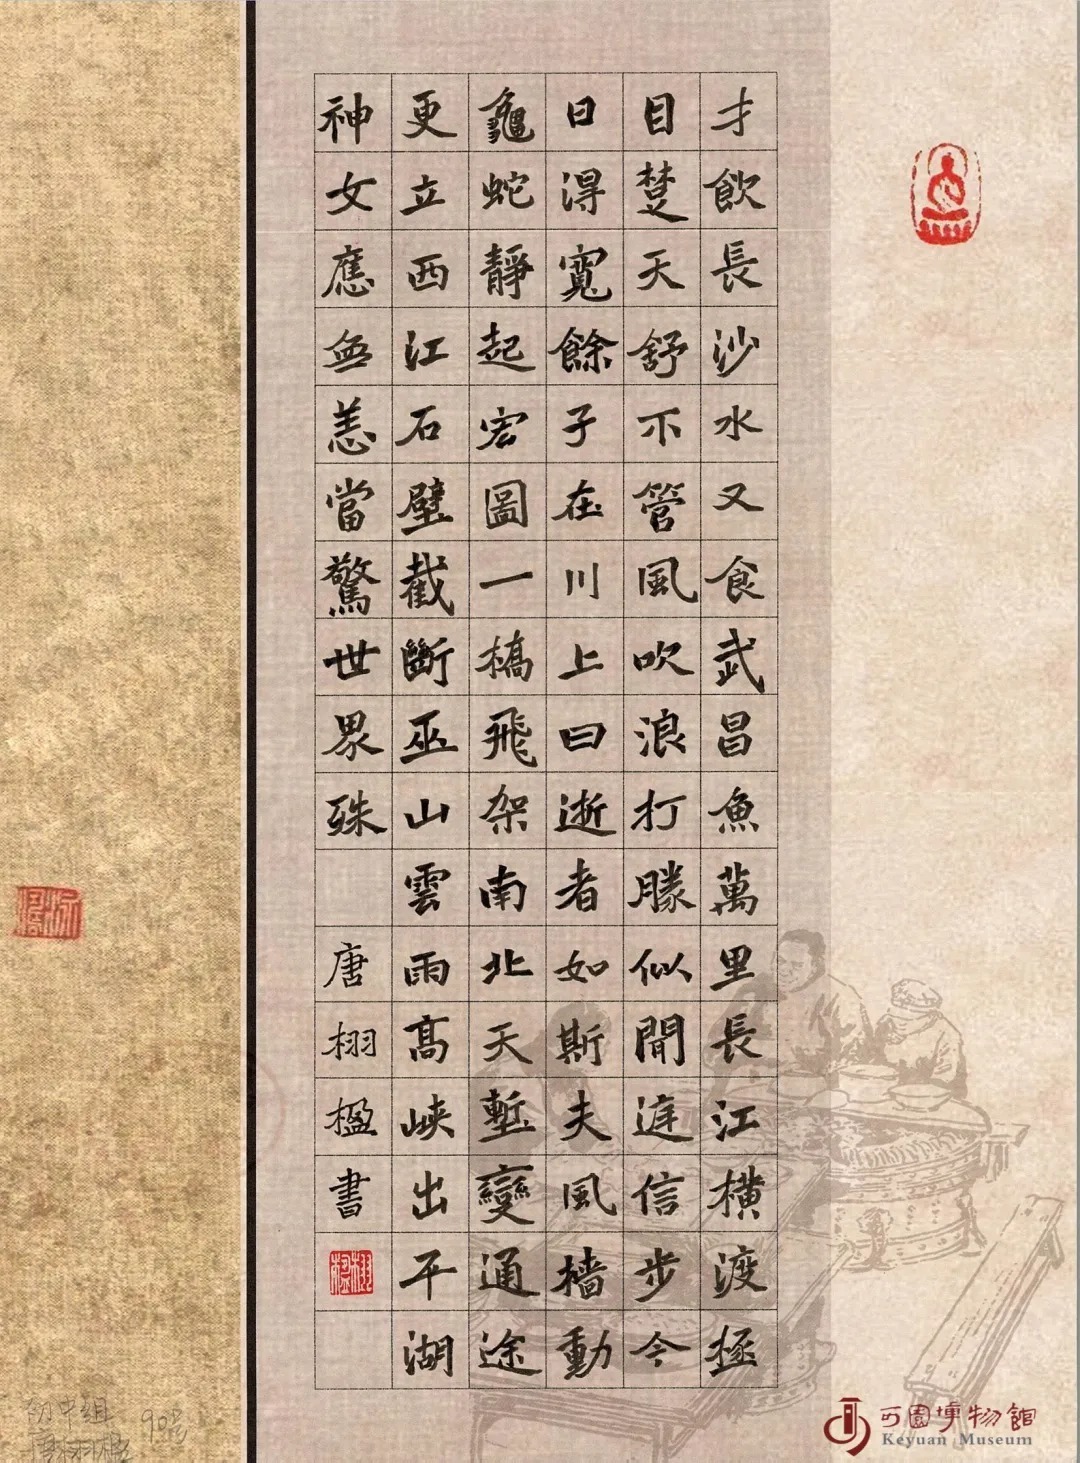 才飲長沙水又食武昌魚萬里長江橫渡極
目楚天舒不管風吹浪打勝似閒庭信步今
日得寬餘子在川上曰逝者如斯夫風檣動
龜蛇靜起宏圖一橋飛架南北天塹變通途
更立西江石壁截斷巫山雲雨高峽出平湖
神女應無恙當驚世界殊 唐栩楹書
栩楹
初中组
唐栩楹
90号
可園博物館
Keyuan Museum